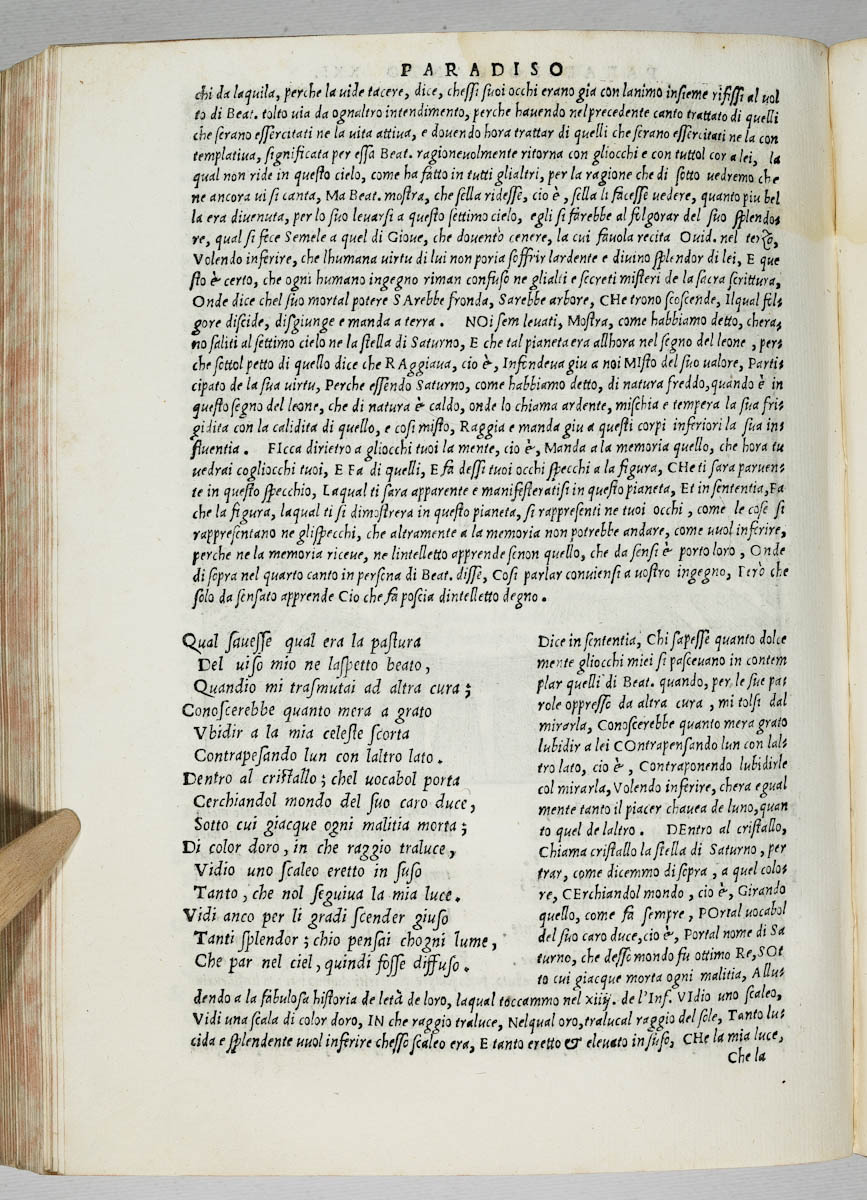 PARADISO
chi da laquila, perche la uide tacere, dice, cheſſi ſuoi occhi erano gia con lanimo inſieme rifiſſi al uol
to di Beat. tolto uia da ognaltro intendimento, perche hauendo nel precedente canto trattato di quelli
che ſerano eſſercitati ne la uita attiua, e douendo hora trattar di quelli che ſerano eſſercitati ne la con
templatiua, ſignificata per eſſa Beat. ragioneuolmente ritorna con gliocchi e con tuttol cor a lei, la
qual non ride in queſto cielo, come ha fatto in tutti glialtri, per la ragione che di ſotto uedremo che
ne ancora ui ſi canta, Ma Beat. moſtra, che ſella rideſſe, cio è, ſella li faceſſe uedere, quanto piu bel
la era diuenuta, per lo ſuo leuarſi a queſto ſettimo cielo, egli ſi farebbe al folgorar del ſuo ſplendo⸗
re, qual ſi fece Semele a quel di Gioue, che douentò cenere, la cui fauola recita Ouid. nel terzo,
Volendo inferire, che lhumana uirtu di lui non poria ſoffrir lardente e diuino ſplendor di lei, E que
ſto è certo, che ogni humano ingegno riman confuſo ne glialti e ſecreti miſteri de la ſacra ſcrittura,
Onde dice chel ſuo mortal potere SArebbe fronda, Sarebbe arbore, CHe trono ſcoſcende, Ilqual fol⸗
gore diſcide, diſgiunge e manda a terra. NOi ſem leuati, Moſtra, come habbiamo detto, chera⸗
no ſaliti al ſettimo cielo ne la ſtella di Saturno, E che tal pianeta era allhora nel ſegno del leone, per⸗
che ſottol petto di quello dice che RAggiaua, cio è, Infondeua giu a noi MIſto del ſuo ualore, Parti⸗
cipato de la ſua uirtu, Perche eſſendo Saturno, come habbiamo detto, di natura freddo, quando è in
queſto ſegno del leone, che di natura è caldo, onde lo chiama ardente, miſchia e tempera la ſua fri⸗
gidita con la calidita di quello, e coſi miſto, Raggia e manda giu a queſti corpi inferiori la ſua in⸗
fluentia. FIcca dirietro a gliocchi tuoi la mente, cio è, Manda a la memoria quello, che hora tu
uedrai cogliocchi tuoi, E Fa di quelli, E fà deſſi tuoi occhi ſpecchi a la figura, CHe ti ſara paruen⸗
te in queſto ſpecchio, Laqual ti ſara apparente e manifeſteratiſi in queſto pianeta, Et in ſententia, Fa
che la figura, laqual ti ſi dimoſtrera in queſto pianeta, ſi rappreſenti ne tuoi occhi, come le coſe ſi
rappreſentano ne gliſpecchi, che altramente a la memoria non potrebbe andare, come uuol inferire,
perche ne la memoria riceue, ne lintelletto apprende ſenon quello, che da ſenſi è porto loro, Onde
di ſopra nel quarto canto in perſona di Beat. diſſe, Coſi parlar conuienſi a uoſtro ingegno, Però che
ſolo da ſenſato apprende Cio che fa poſcia dintelletto degno.
Qual ſaueſſe qual era la paſtura
Del uiſo mio ne laſpetto beato,
Quandio mi traſmutai ad altra cura;
Conoſcerebbe quanto mera a grato
Vbidir a la mia celeſte ſcorta
Contrapeſando lun con laltro lato.
Dentro al criſtallo; chel uocabol porta
Cerchiandol mondo del ſuo caro duce,
Sotto cui giacque ogni malitia morta;
Di color doro, in che raggio traluce,
Vidio uno ſcaleo eretto in ſuſo
Tanto, che nol ſeguiua la mia luce.
Vidi anco per li gradi ſcender giuſo
Tanti ſplendor; chio penſai chogni lume,
Che par nel ciel, quindi foſſe diffuſo.
Dice in ſententia, Chi ſapeſſe quanto dolce
mente gliocchi miei ſi paſceuano in contem
plar quelli di Beat. quando, per le ſue pa⸗
role oppreſſo da altra cura, mi tolſi dal
mirarla, Conoſcerebbe quanto mera grato
lubidir a lei COntrapenſando lun con lal⸗
tro lato, cio è, Contraponendo lubidirle
col mirarla, Volendo inferire, chera egual
mente tanto il piacer chauea de luno, quan
to quel de laltro. DEntro al criſtallo,
Chiama criſtallo la ſtella di Saturno, per
trar, come dicemmo di ſopra, a quel colo⸗
re, CErchiandol mondo, cio è, Girando
quello, come fa ſempre, POrtal uocabol
del ſuo caro duce, cio è, Portal nome di Sa
turno, che deſſo mondo fu ottimo Re, SOt
to cui giacque morta ogni malitia, Allu⸗
dendo a la fabuloſa hiſtoria de letà de loro, laqual toccammo nel xiiij. de l'Inf. VIdio uno ſcaleo,
Vidi una ſcala di color doro, IN che raggio traluce, Nelqual oro, tralucal raggio del ſole, Tanto lu⸗
cida e ſplendente uuol inferire cheſſo ſcaleo era, E tanto eretto & eleuato in ſuſo, CHe la mia luce,
Che la